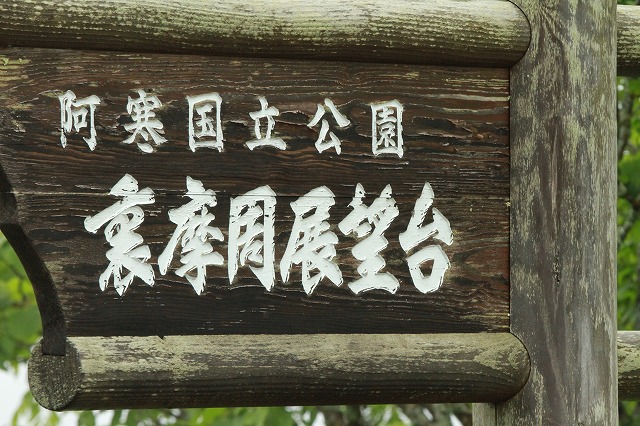 阿寒国立公園
裏摩周展望台